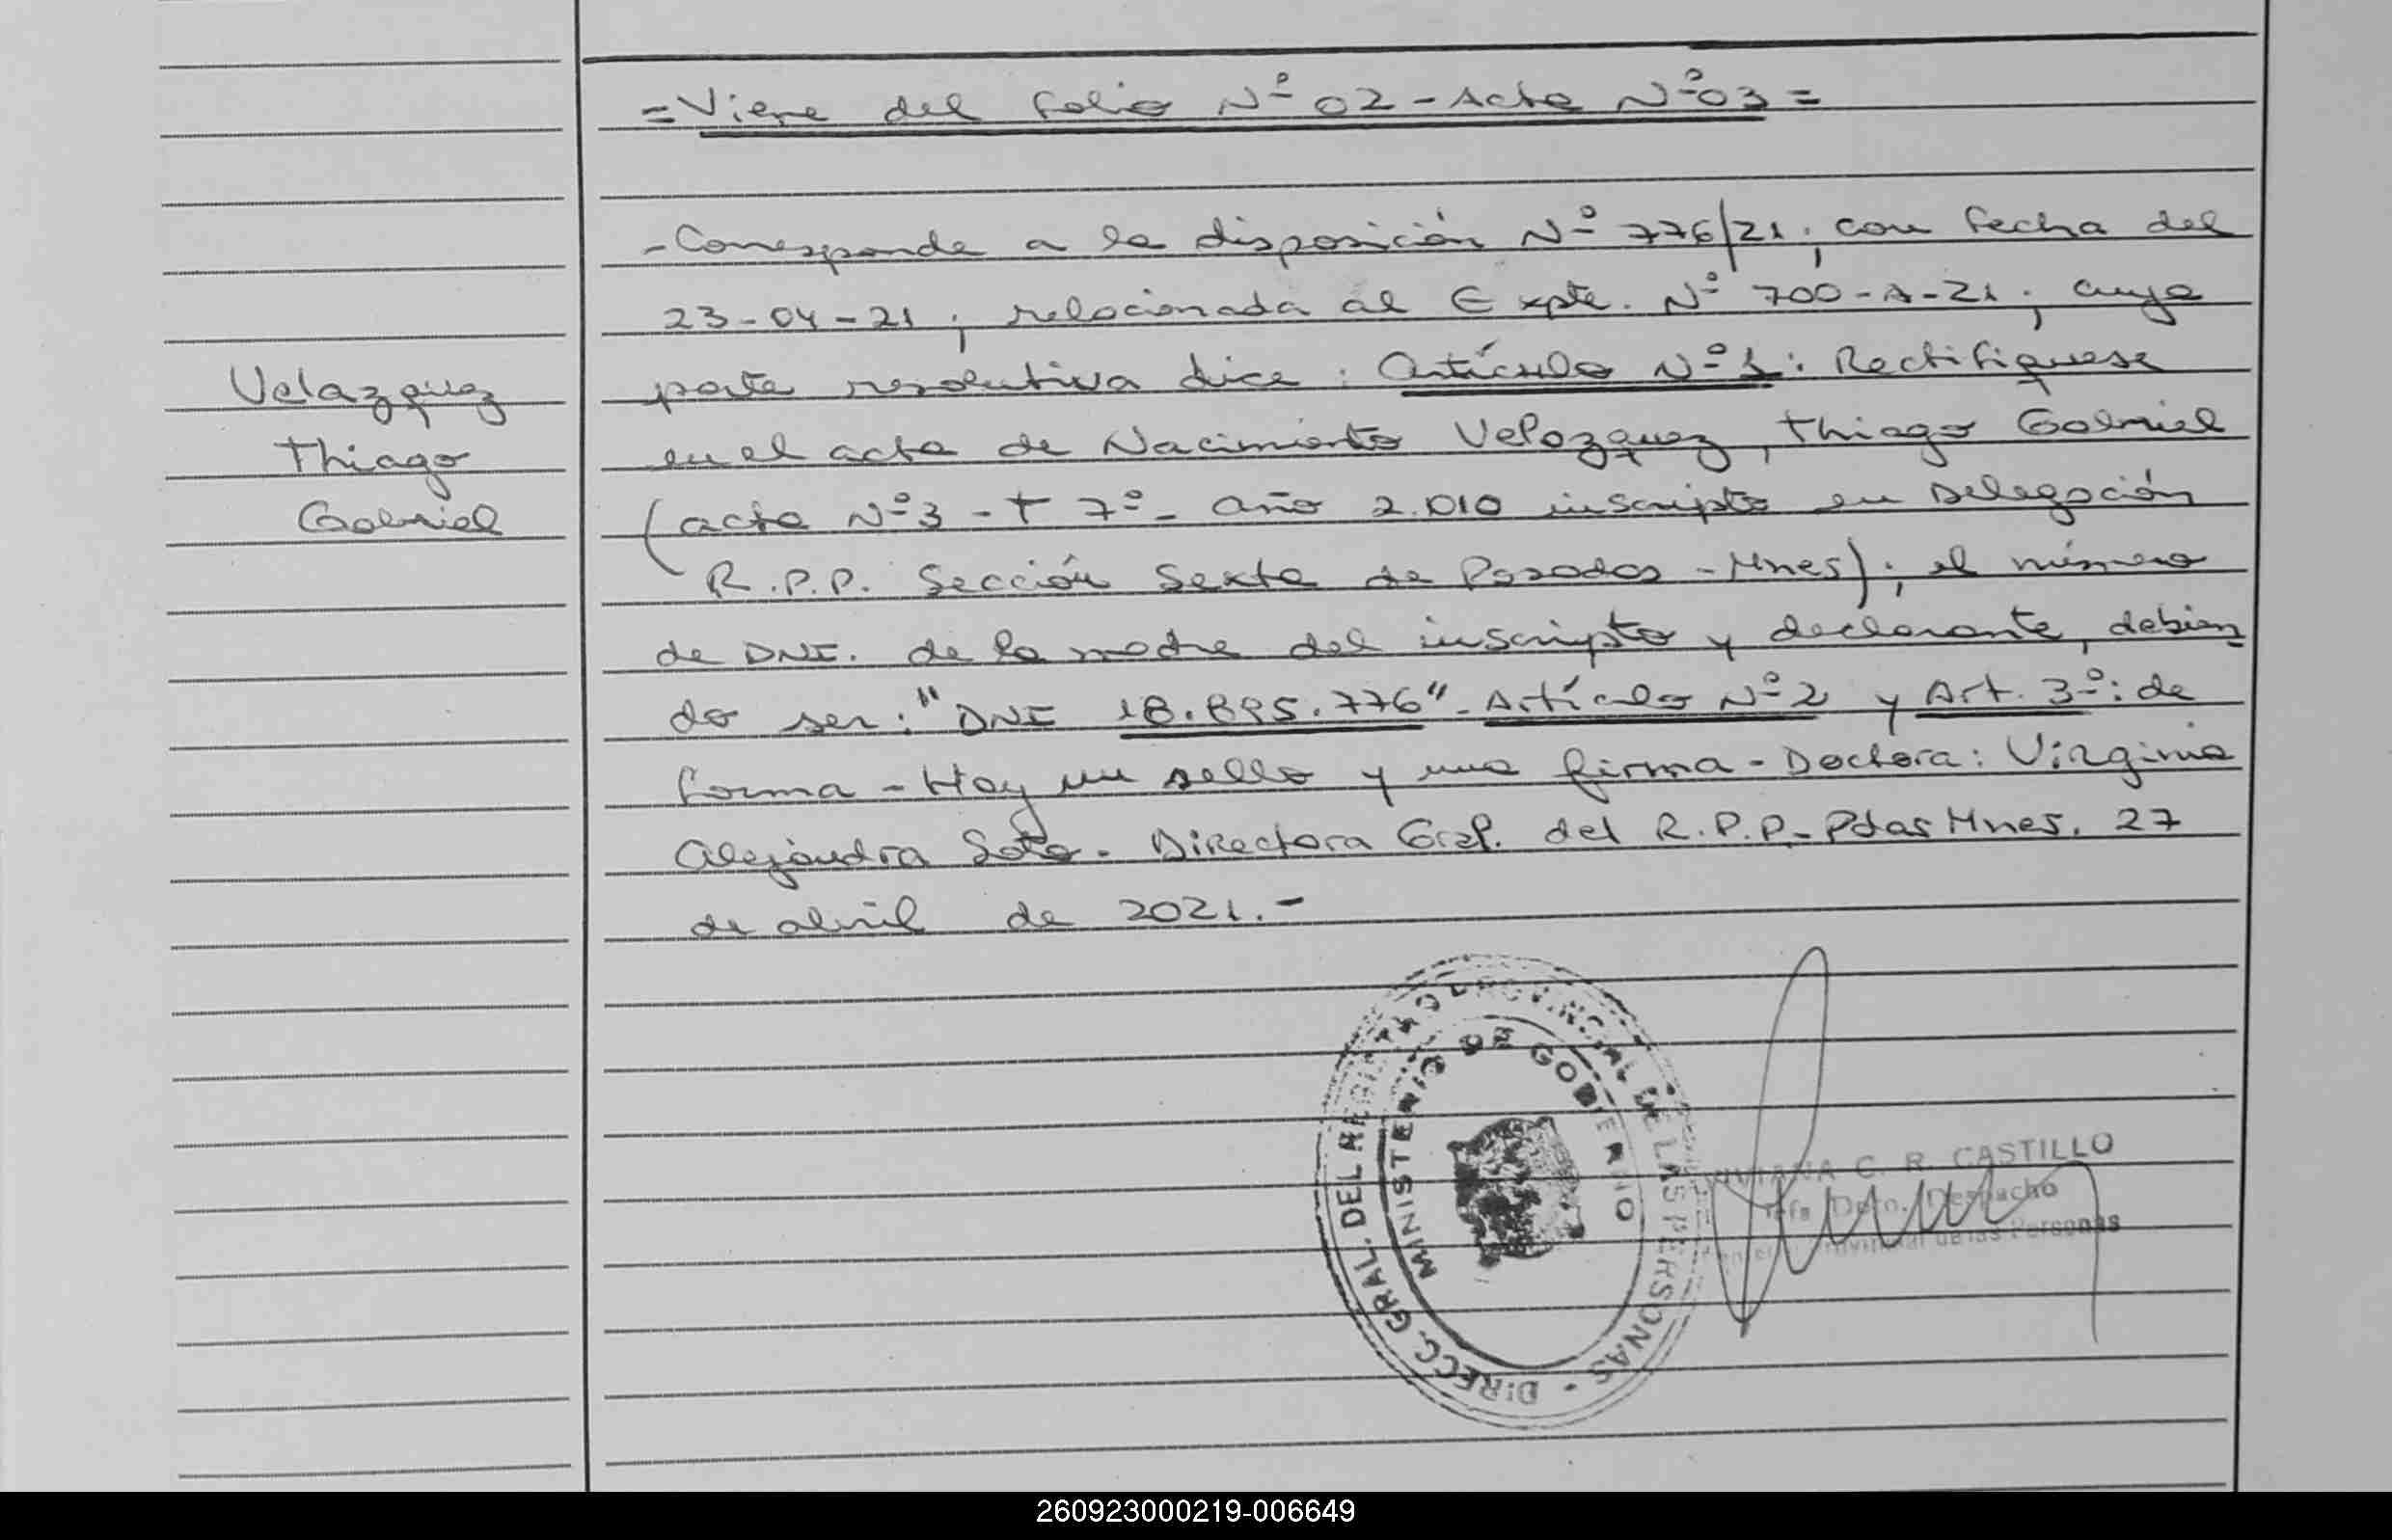 =Viene del folio Nº 02 - Acta Nº 03=
-Corresponde a la disposición Nº 776/21; con fecha del
23-04-21; relacionada al Expte. Nº 700-A-21; cuya
parte resolutiva dice: Artículo Nº 1: Rectifiquese
en el acta de Nacimiento Velazquez, Thiago Gabriel
(acta Nº 3 - t 7º - año 2.010 inscripto en Delegación
R.P.P. Sección Sexta de Posadas - Mnes); el número
de DNI. de la madre del inscripto y declarante, debien
do ser: "DNI 18.895.776" - Artículo Nº 2 y Art. 3º: de
forma - Hay un sello y una firma - Doctora: Virginia
Alejandra Soto - Directora Gral. del R.P.P - Pdas Mnes. 27
de abril de 2021.-
Velazquez
Thiago
Gabriel
DIRECC. GRAL. DEL REGISTRO PROVINCIAL DE LAS PERSONAS
MINISTERIO DE GOBIERNO
VIVIANA C. R. CASTILLO
Jefa Dpto. Despacho
Provincial de las Personas
260923000219-006649